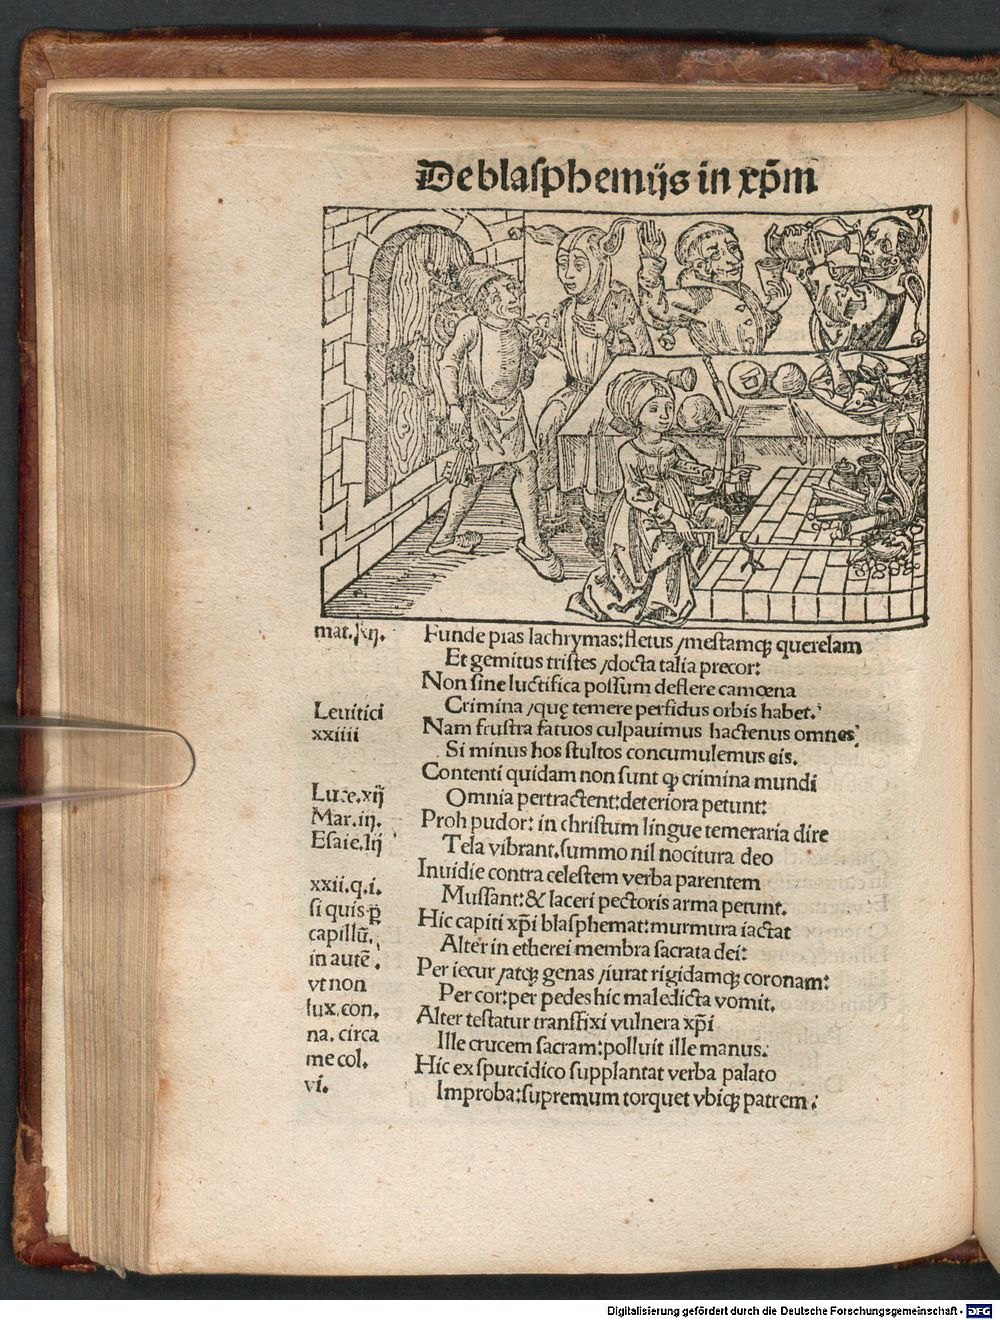 De blasphemijs in xp̄m
mat. xij.
Funde pias lachrymas: fletus / mestamqꝫ querelam
Et gemitus tristes / docta talia precor:
Non sine luctifica possum deflere camœna
Leuitici
Crimina / quę temere perfidus orbis habet.
xxiiii
Nam frustra fatuos culpauimus hactenus omnes:
Si minus hos stultos concumulemus eis.
Contenti quidam non sunt qꝫ crimina mundi
Luce. xij
Omnia pertractent: deteriora petunt:
Mar. iij.
Proh pudor: in christum lingue temeraria dire
Esaie. lij
Tela vibrant. summo nil nocitura deo
Inuidie contra celestem verba parentem
xxii. q. i.
Mussant: & laceri pectoris arma petunt.
si quis p̲
Hic capiti xp̄i blasphemat: murmura iactat
capillū.
Alter in etherei membra sacrata dei:
in autē .
Per iecur / atqꝫ genas / iurat rigidamqꝫ coronam:
vt non
Per cor: per pedes hic maledicta vomit.
lux. con.
Alter testatur transfixi vulnera xp̄i
na. circa
Ille crucem sacram: polluit ille manus:
me col.
Hic ex spurcidico supplantat verba palato
vi.
Improba: supremum torquet vbiqꝫ patrem:
Digitalisierung gefördert durch die Deutsche Forschungsgemeinschaft - DFG